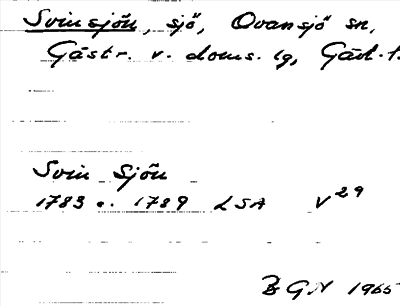 Svinsjön, sjö, Ovansjö sn,
Gästr. v. doms. lg, Gävl. l.
Svin Sjön
1783 o. 1789 LSA V29
BGN 1965